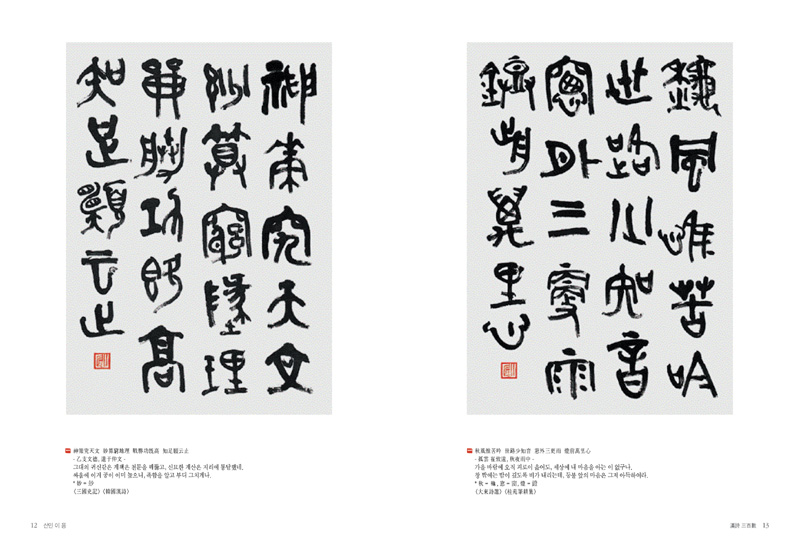 神策究天文
妙算窮墬理
戰勝功既高
知足願云止
神策究天文 妙算窮地理 戰勝功既高 知足願云止
- 乙支文德, 遺于仲文 -
그대의 귀신같은 계책은 천문을 꿰뚫고, 신묘한 계산은 지리에 통달했네,
싸움에 이겨 공이 이미 높으니, 족함을 알고 부디 그치게나.
《三國史記》《韓國漢詩》
12
龝風惟苦吟
世路少知音
窓外三更雨
鐙前萬里心
秋風惟苦吟 世路少知音 窓外三更雨 燈前萬里心
- 孤雲 崔致遠, 秋夜雨中 -
가을 바람에 오직 괴로이 읊어도, 세상에 내 마음을 아는 이 없구나,
창 밖에는 밤이 깊도록 비가 내리는데, 등불 앞의 마음은 그저 아득하여라.
《大東詩選》《桂苑筆耕集》
漢詩 三百 13